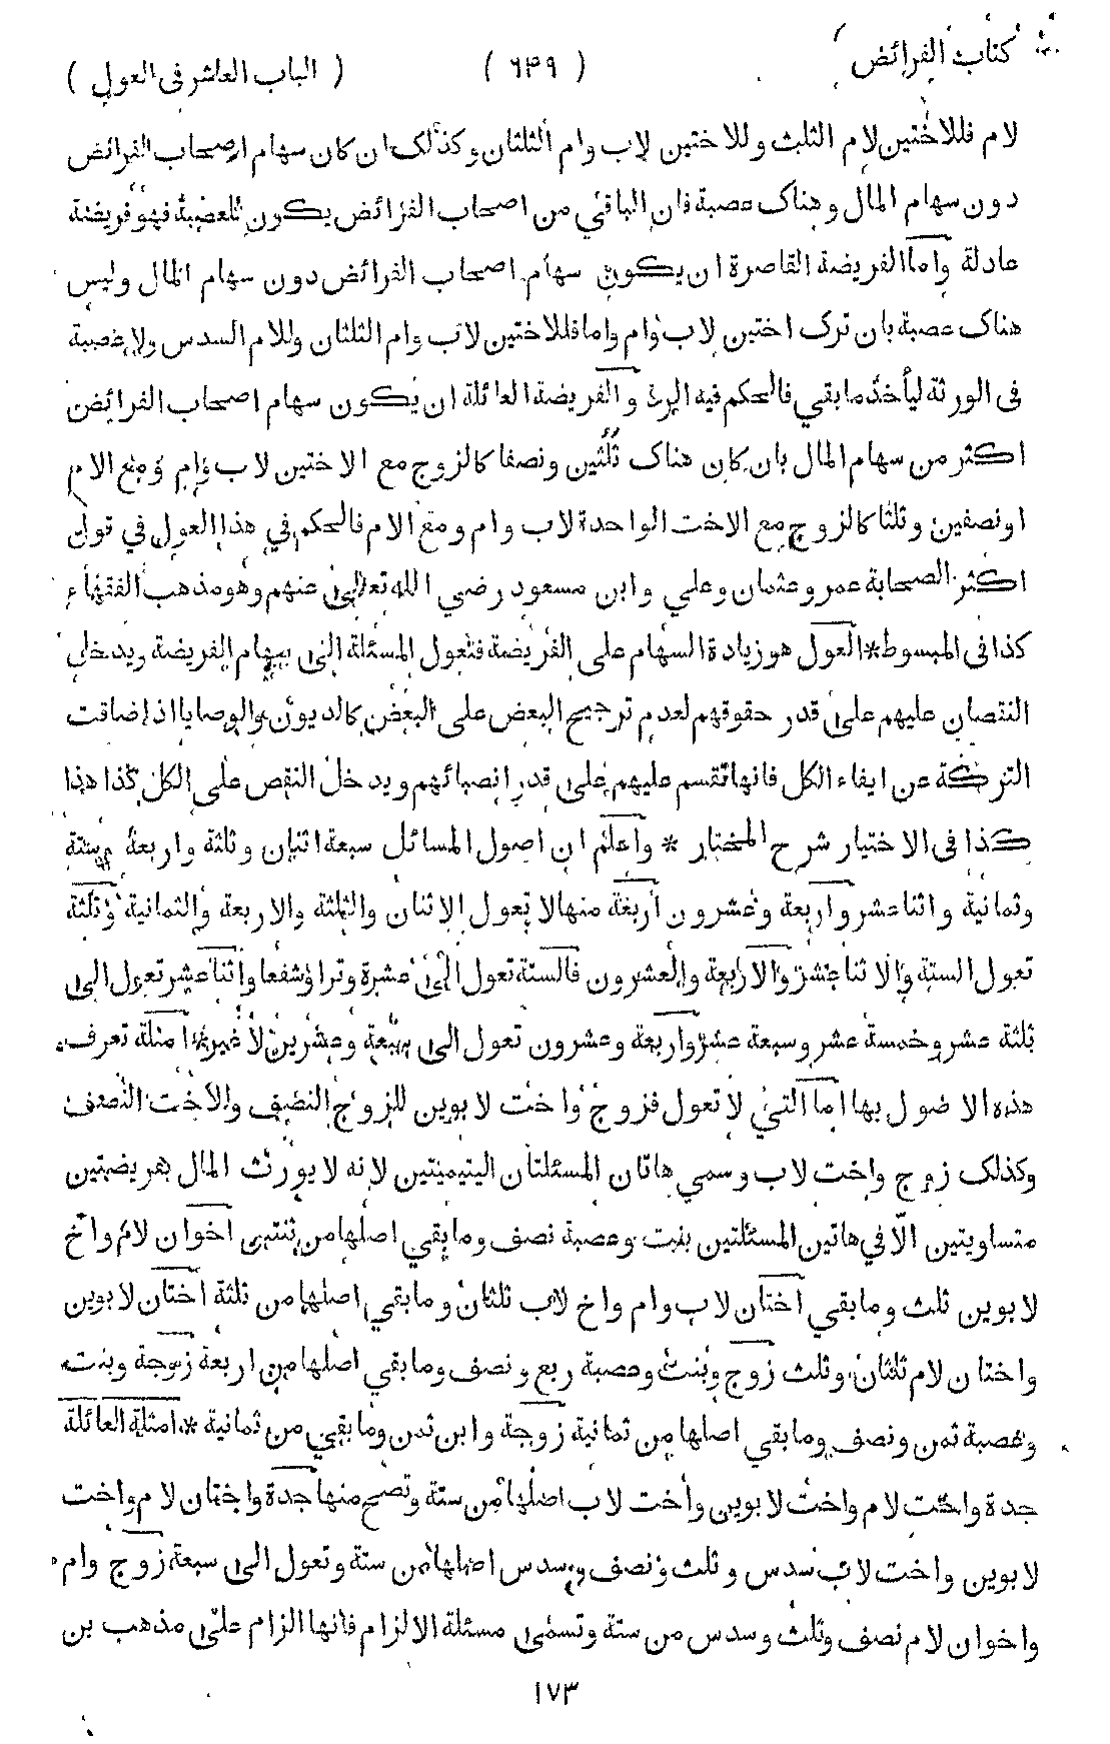 كتاب الفرائض ( ٦٣٩ ) ( الباب العاشر فى العول )
لام فللاختين لام الثلث وللاختين لاب وام الثلثان وكذلك ان كان سهام اصحاب الفرائض
دون سهام المال وهناك عصبة فان الباقي من اصحاب الفرائض يكون للعصبة فهو فريضة
عادلة واما الفريضة القاصرة ان يكون سهام اصحاب الفرائض دون سهام المال وليس
هناك عصبة بان ترك اختين لاب وام واما فللاختين لاب وام الثلثان وللام السدس ولا عصبة
فى الورثة ليأخذ ما بقي فالحكم فيه الرد والفريضة العائلة ان يكون سهام اصحاب الفرائض
اكثر من سهام المال بان كان هناك ثلثين ونصفا كالزوج مع الاختين لاب وام ومع الام
او نصفين وثلثا كالزوج مع الاخت الواحدة لاب وام ومع الام فالحكم في هذا العول في قول
اكثر الصحابة عمر وعثمان وعلي وابن مسعود رضي الله تعالى عنهم وهو مذهب الفقهاء
كذا فى المبسوط * العول هو زيادة السهام على الفريضة فتعول المسئلة الى سهام الفريضة ويدخل
النقصان عليهم على قدر حقوقهم لعدم ترجيح البعض على البعض كالديون والوصايا اذا ضاقت
التركة عن ايفاء الكل فانها تقسم عليهم على قدر انصبائهم ويدخل النقص على الكل كذا هذا
كذا فى الاختيار شرح المختار * واعلم ان اصول المسائل سبعة اثنان وثلثة واربعة وستة
وثمانية واثنا عشر واربعة وعشرون اربعة منها لا تعول الاثنان والثلثة والاربعة والثمانية وثلثة
تعول الستة والاثنا عشر والاربعة والعشرون فالستة تعول الى عشرة وترا وشفعا واثنا عشر تعول الى
ثلثة عشر وخمسة عشر وسبعة عشر واربعة وعشرون تعول الى سبعة وعشرين لا غير * امثلة تعرف
هذه الاصول بها اما التي لا تعول فزوج واخت لابوين للزوج النصف والاخت النصف
وكذلك زوج واخت لاب وسمي هاتان المسئلتان اليتيمتين لانه لا يورث المال بفريضتين
متساويتين الّا في هاتين المسئلتين بنت وعصبة نصف وما بقي اصلها من ثنتين اخوان لام واخ
لابوين ثلث وما بقي اختان لاب وام واخ لاب ثلثان وما بقي اصلها من ثلثة اختان لابوين
واختان لام ثلثان وثلث زوج وبنت وعصبة ربع ونصف وما بقي اصلها من اربعة زوجة وبنت
وعصبة ثمن ونصف وما بقي اصلها من ثمانية زوجة وابن ثمن وما بقي من ثمانية * امثلة العائلة
جدة واخت لام واخت لابوين واخت لاب اصلها من ستة وتصح منها جدة واختان لام واخت
لابوين واخت لاب سدس وثلث ونصف وسدس اصلها من ستة وتعول الى سبعة زوج وام
واخوان لام نصف وثلث وسدس من ستة وتسمى مسئلة الالزام فانها الزام على مذهب بن
١٧٣